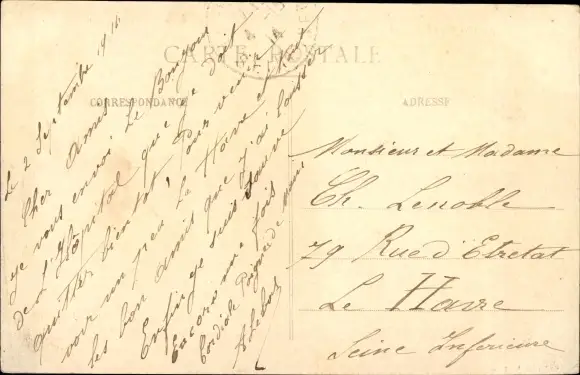 CARTE POSTALE
CORRESPONDANCE
ADRESSE
Le 2 Septembre 1914
Cher Amis
Je vous envoi Le Bonjour
de L'Hôpital que je doit
quitter bientot, Pour venir
voir un peu Le Havre et tout
les bon amis que J'ai Laisser
Enfin je suis sauvé
Encore une fois
Cordiale Poignee de main
Monsieur et Madame
Ch. Lenoble
79 Rue d'Etretat
Le Havre
Seine Inferieure